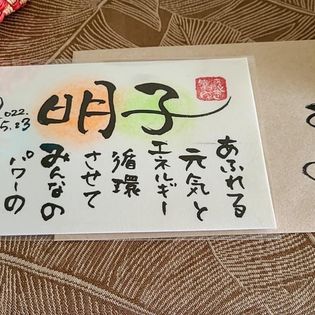 明子
2022.
5.23
あふれる
元気と
エネルギー
循環
させて
みんなの
パワーの